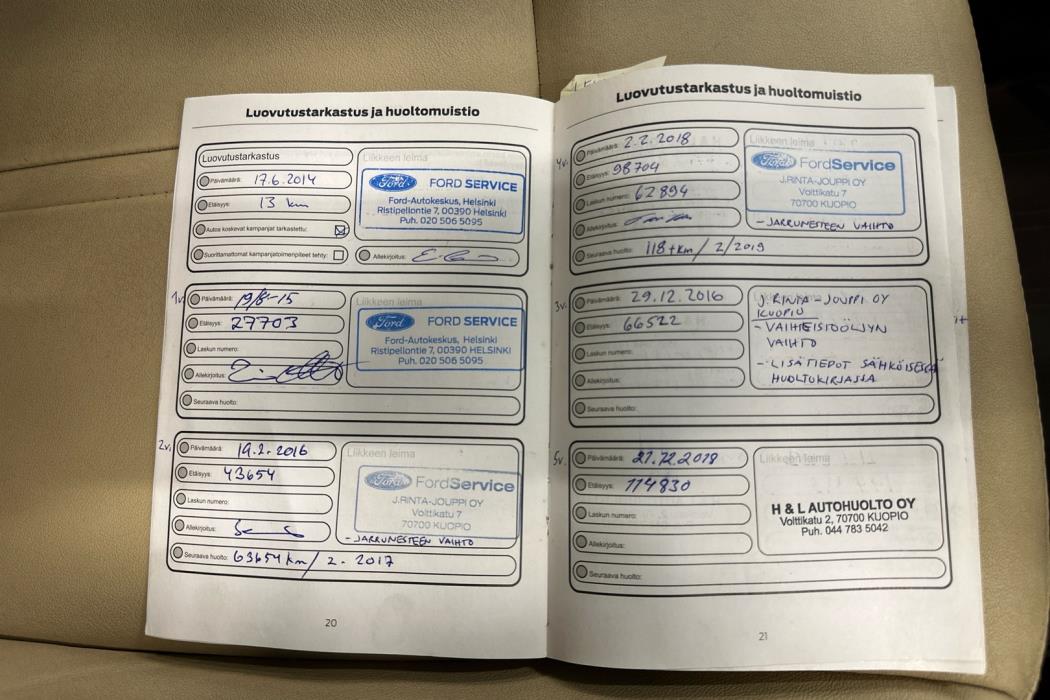 Luovutustarkastus ja huoltomuistio
Luovutustarkastus
Liikkeen leima
Päivämäärä: 17.6.2014
Etäisyys: 13 km
Autoa koskevat kampanjat tarkastettu:
Suorittamattomat kampanjatoimenpiteet tehty:
Ford FORD SERVICE
Ford-Autokeskus, Helsinki
Ristipellontie 7, 00390 Helsinki
Puh. 020 506 5095
Allekirjoitus:
1v.
Päivämäärä: 19/8-15
Etäisyys: 27703
Laskun numero:
Allekirjoitus:
Seuraava huolto:
Liikkeen leima
Ford FORD SERVICE
Ford-Autokeskus, Helsinki
Ristipellontie 7, 00390 HELSINKI
Puh. 020 506 5095
2v.
Päivämäärä: 19.2.2016
Etäisyys: 43654
Laskun numero:
Allekirjoitus:
Seuraava huolto: 63654 km / 2.2017
Liikkeen leima
Ford FordService
J.RINTA-JOUPPI OY
Volttikatu 7
70700 KUOPIO
- JARRUNESTEEN VAIHTO
20
Luovutustarkastus ja huoltomuistio
4v.
Päivämäärä: 2.2.2018
Etäisyys: 98704
Laskun numero: 62894
Allekirjoitus:
Seuraava huolto: 118 tkm / 2/2019
Liikkeen leima
Ford FordService
J.RINTA-JOUPPI OY
Volttikatu 7
70700 KUOPIO
- JARRUNESTEEN VAIHTO
3v.
Päivämäärä: 29.12.2016
Etäisyys: 66522
Laskun numero:
Allekirjoitus:
Seuraava huolto:
J. RINTA-JOUPPI OY
KUOPIO
- VAIHTEISTOÖLJYN
VAIHTO
- LISÄTIEDOT SÄHKÖISESSÄ
HUOLTOKIRJASSA
5v.
Päivämäärä: 27.12.2018
Etäisyys: 114830
Laskun numero:
Allekirjoitus:
Seuraava huolto:
Liikkeen leima
H & L AUTOHUOLTO OY
Volttikatu 2, 70700 KUOPIO
Puh. 044 783 5042
21